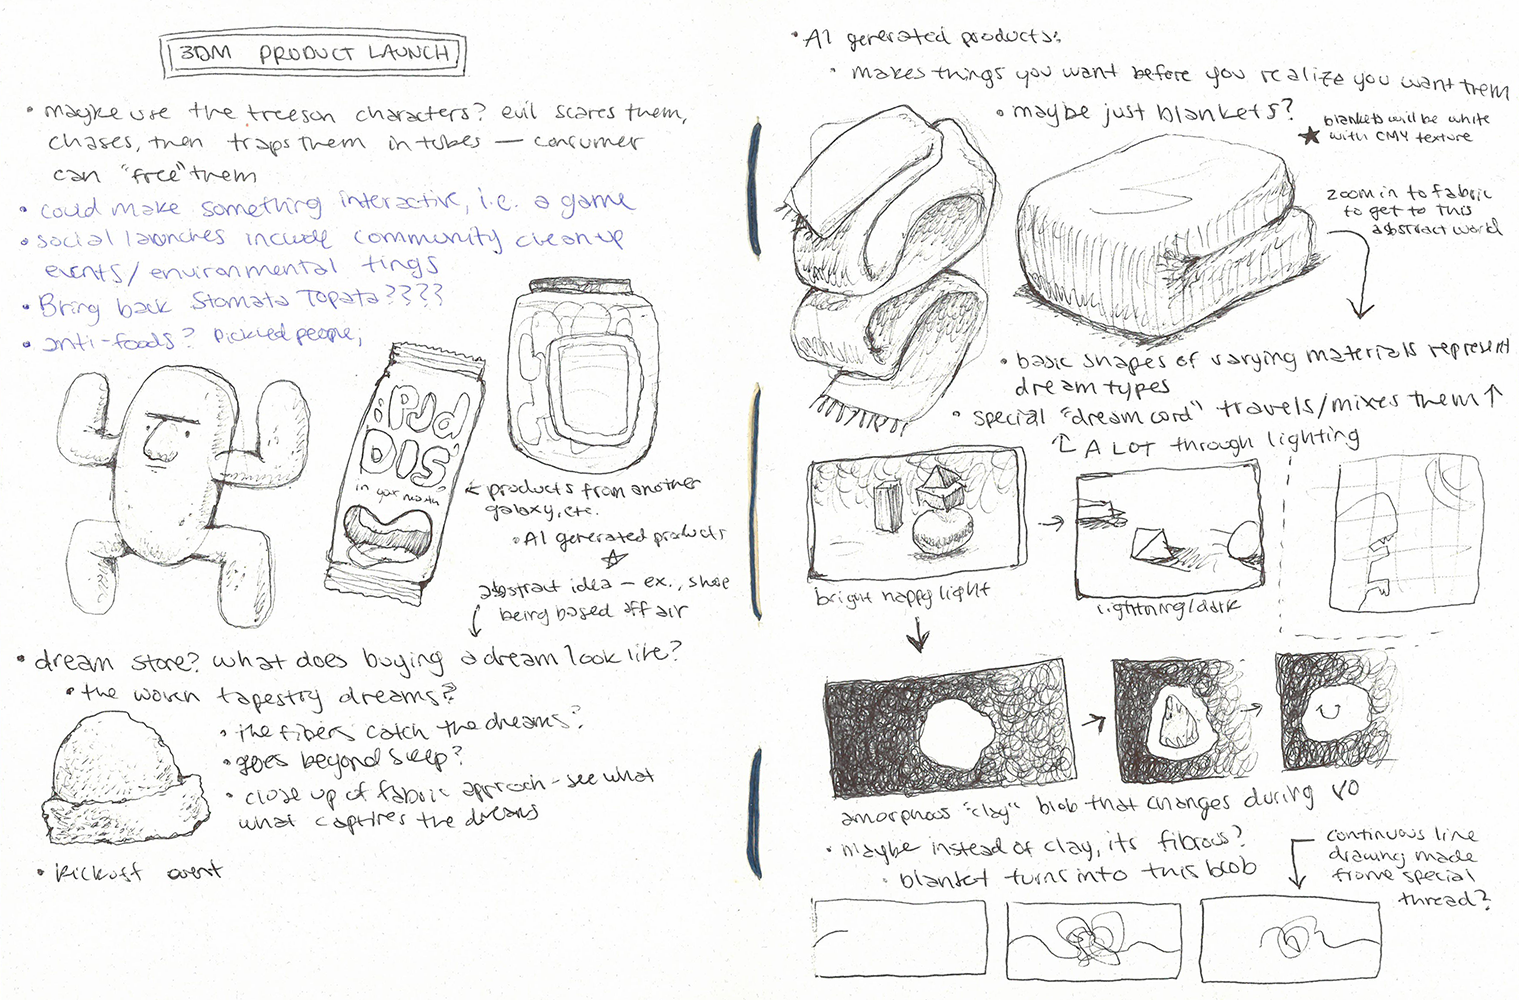 3DM PRODUCT LAUNCH
• maybe use the treeson characters? evil scares them,
chases, then traps them in tubes — consumer
can "free" them
• could make something interactive, i.e. a game
• social launches include community cleanup
events/environmental tings
• Bring back Stomata Topata????
• anti-foods? pickled people,
¡PUD
DIS!
in your mouth
← products from another
galaxy, etc.
• AI generated products
☆
abstract idea — ex., shoe
being based off air
• dream store? what does buying a dream look like?
• the woven tapestry dreams?
• the fibers catch the dreams?
• goes beyond sleep?
• close up of fabric approach - see what
what captires the dreams
• kickoff event
• AI generated products:
• makes things you want before you realize you want them
• maybe just blankets?
★ blankets will be white
with CMY texture
zoom in to fabric
to get to this
abstract world
• basic shapes of varying materials represent
dream types
• special "dream cord" travels/mixes them ↑
↑ A LOT through lighting
bright happy light
lightning/dark
amorphous "clay" blob that changes during VO
• maybe instead of clay, its fibrous?
• blanket turns into this blob
continuous line
drawing made
frome special
thread?